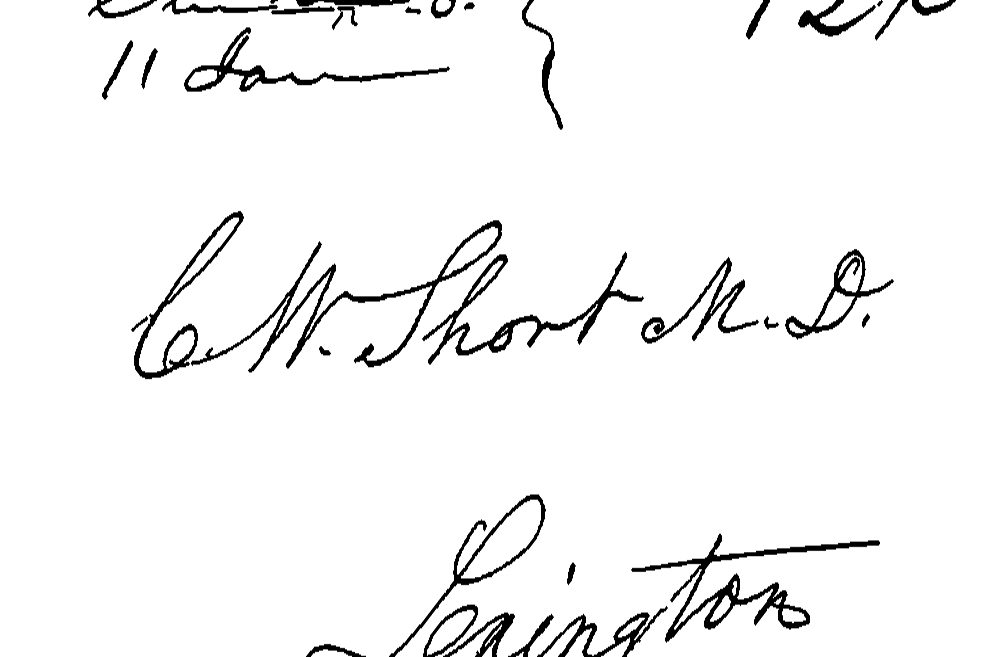 11 Jan
C. W. Short M. D.
Lexington